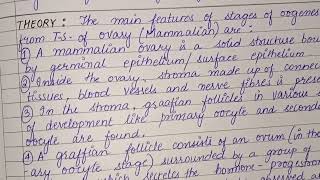 THEORY: The main features of stages of oogenes
from T.S. of ovary (Mammalian) are:
1) A mammalian ovary is a solid structure bou
by germinal epithelium/ surface epithelium
2) Inside the ovary, stroma made up of connec
tissues, blood vessels and nerve fibres is prese
3) In the stroma, graafian follicles in various s
of development like primary oocyte and second
oocyte are found.
4) A graffian follicle consists of an ovum (in the
ary oocyte stage) surrounded by a group of
which secretes the hormone - progestron